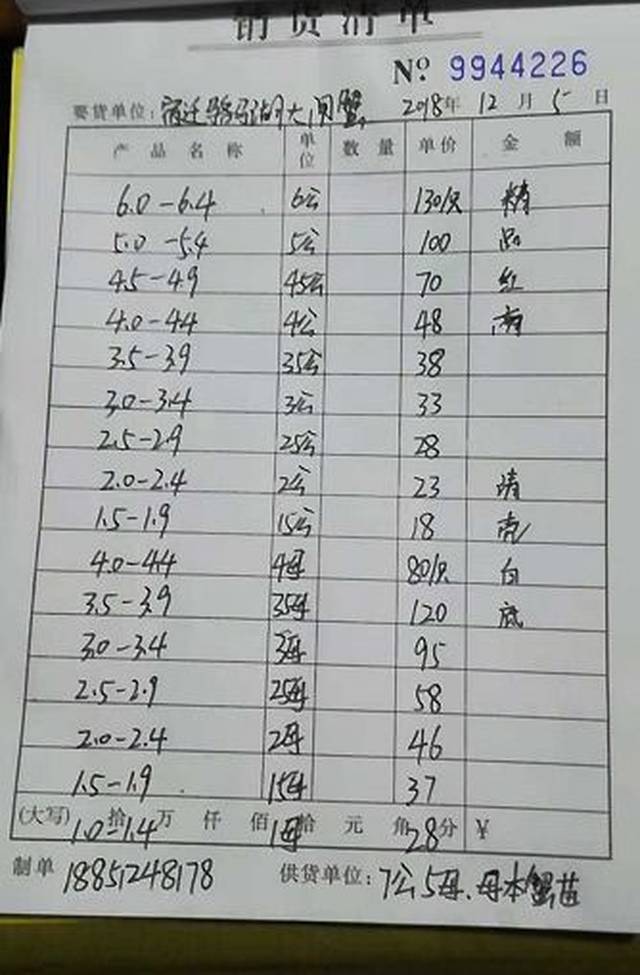 销货清单
No. 9944226
要货单位: 宿迁骆马湖大闸蟹 2018年 12月 5日
产品名称 单位 数量 单价 金额
6.0-6.4 6公 130/只 精
5.0-5.4 5公 100 品
4.5-4.9 45公 70 红
4.0-4.4 4公 48 膏
3.5-3.9 35公 38
3.0-3.4 3公 33
2.5-2.9 25公 28
2.0-2.4 2公 23 清
1.5-1.9 15公 18 壳
4.0-4.4 4母 80/只 白
3.5-3.9 35母 120 底
3.0-3.4 3母 95
2.5-2.9 25母 58
2.0-2.4 2母 46
1.5-1.9 15母 37
(大写) 拾 万 仟 佰 拾 元 角 分 ¥
1.0-1.4 1母 28
制单 18851248178 供货单位: 7公5母、母本蟹苗